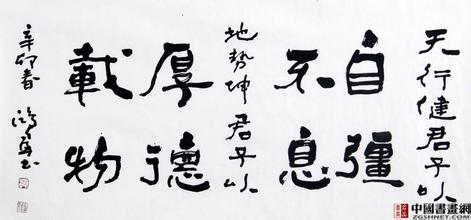 天行健君子以
自彊
不息
地勢坤君子以
厚德
載物
辛卯春
中國書畫網
ZGSHNET.COM